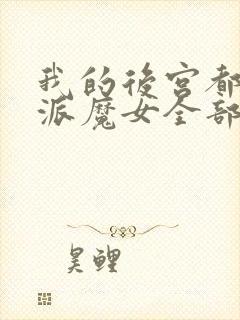 我的後宮都
派魔女全部
昊鲤